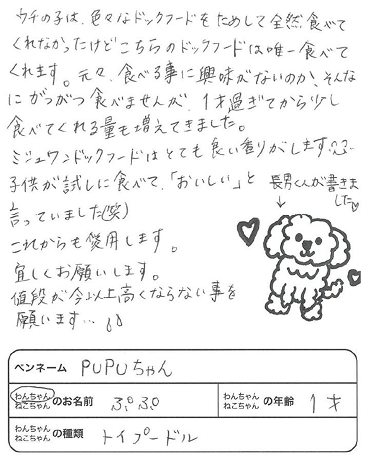 ウチの子は、色々なドックフードをためして全然食べて
くれなかったけどこちらのドックフードは唯一食べて
くれます。元々、食べる事に興味がないのか、そんな
にがつがつ食べませんが、1才過ぎてから少し
食べてくれる量も増えてきました。
ミシュワンドックフードはとても良い香りがします
子供が試しに食べて、「おいしい」と
言っていました(笑)
これからも愛用します。
宜しくお願いします。
値段が今以上高くならない事を
願います…
長男くんが書きま
した
ペンネーム PUPUちゃん
わんちゃん
ねこちゃん のお名前 ぷぷ
わんちゃん
ねこちゃん の年齢 1才
わんちゃん
ねこちゃん の種類 トイプードル